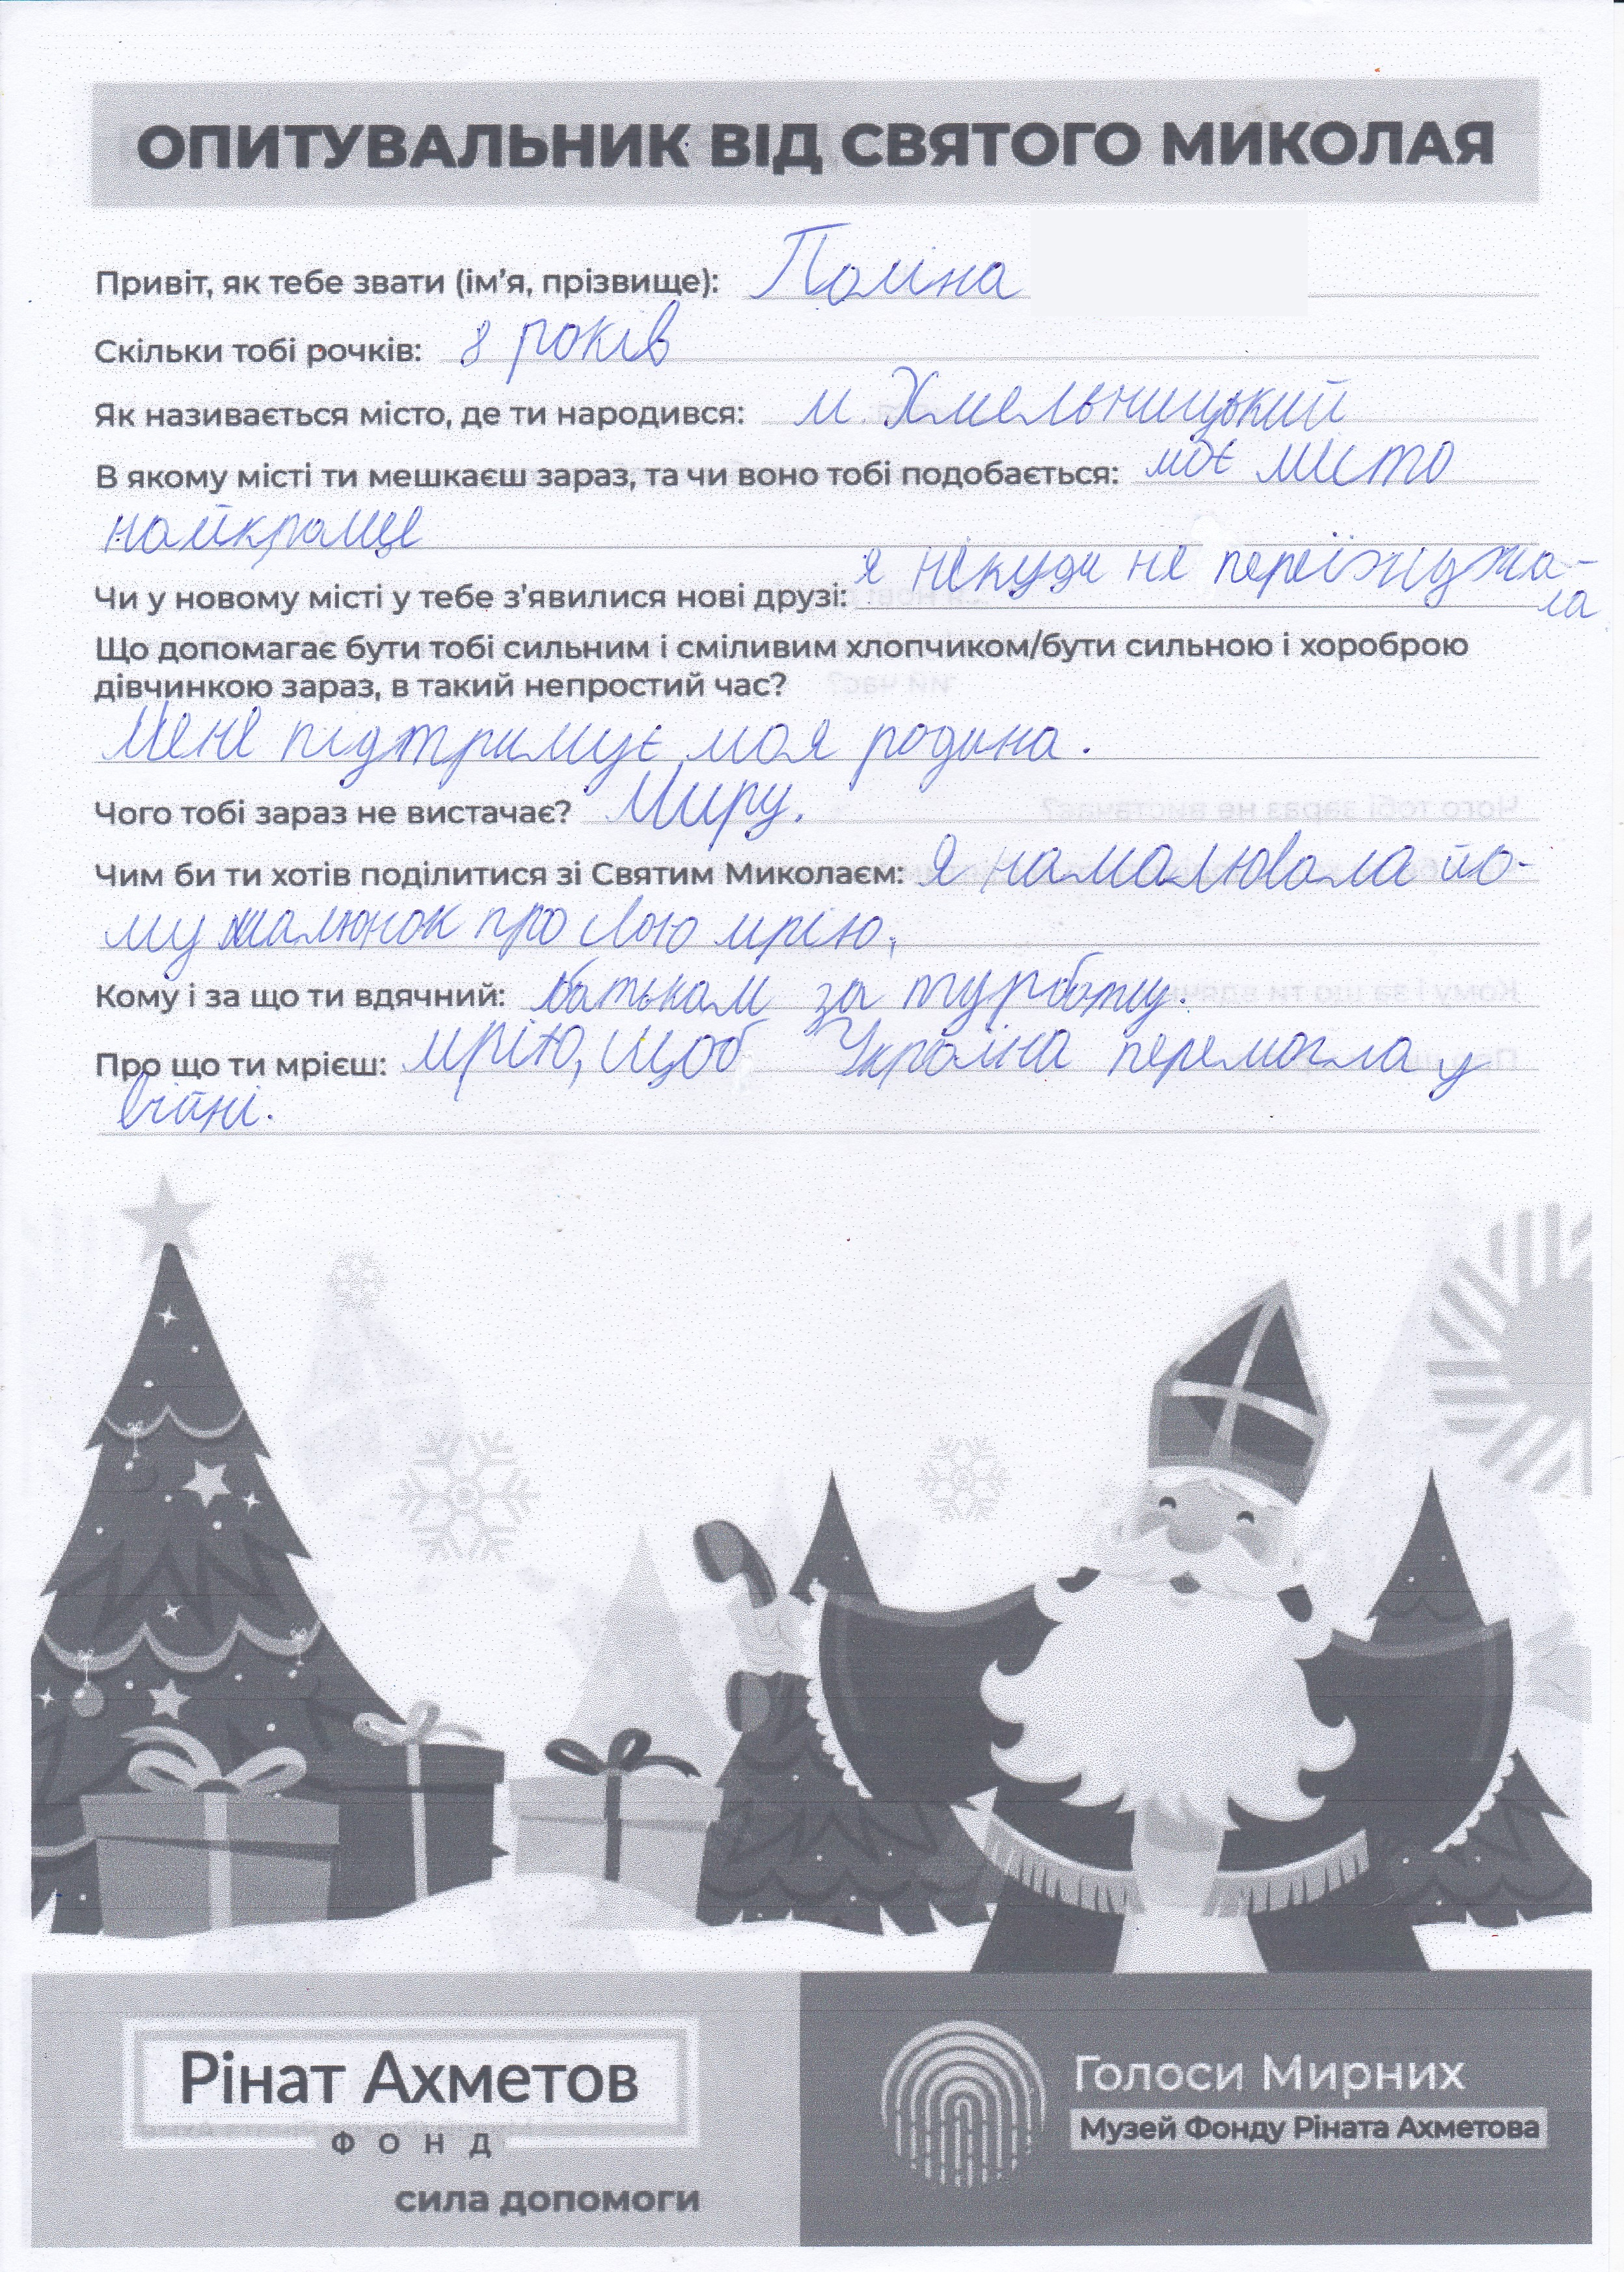 ОПИТУВАЛЬНИК ВІД СВЯТОГО МИКОЛАЯ
Привіт, як тебе звати (ім'я, прізвище): Поліна
Скільки тобі рочків: 8 років
Як називається місто, де ти народився: м. Хмельницький
В якому місті ти мешкаєш зараз, та чи воно тобі подобається: моє місто
найкраще
Чи у новому місті у тебе з'явилися нові друзі: я нікуди не переїжджа-
ла
Що допомагає бути тобі сильним і сміливим хлопчиком/бути сильною і хороброю
дівчинкою зараз, в такий непростий час?
Мене підтримує моя родина.
Чого тобі зараз не вистачає? Миру.
Чим би ти хотів поділитися зі Святим Миколаєм: Я намалювала йо-
му малюнок про свою мрію.
Кому і за що ти вдячний: батькам за турботу.
Про що ти мрієш: мрію, щоб Україна перемогла у
війні.
Рінат Ахметов
ФОНД
сила допомоги
Голоси Мирних
Музей Фонду Ріната Ахметова